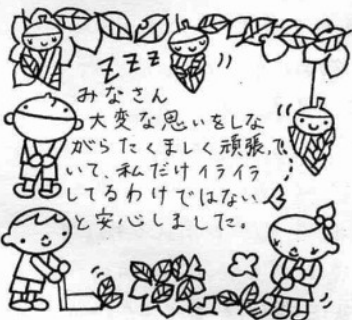 ZZZ
みなさん
大変な思いをしな
がらたくましく頑張って
いて、私だけイライラ
してるわけではない
と安心しました。